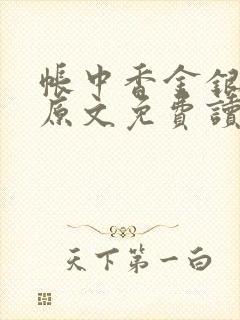 帳中香金銀
原文免費讀
天下第一白